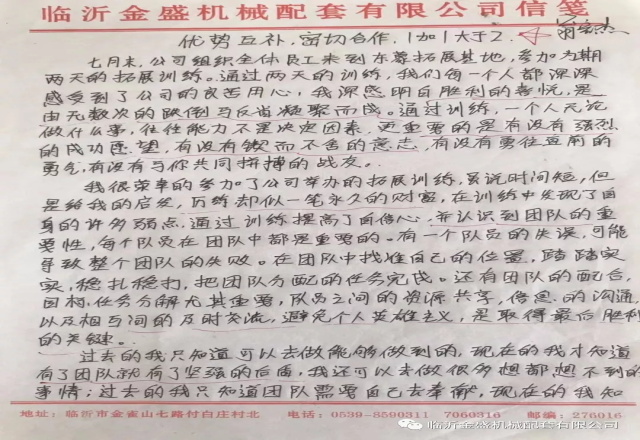 临沂金盛机械配套有限公司信笺
优势互补,密切合作,1加1大于2.
七月末,公司组织全体员工来到东蒙拓展基地,参加为期
两天的拓展训练。通过两天的训练,我们每一个人都深深
感受到了公司的良苦用心,我深感明白胜利的喜悦,是
由无数次的跌倒与反省凝聚而成。通过训练,一个人无论
做什么事,往往能力不是决定因素,更重要的是有没有强烈
的成功愿望,有没有锲而不舍的意志,有没有勇往直前的
勇气,有没有与你共同拼搏的战友。
我很荣幸的参加了公司举办的拓展训练,虽说时间短,但
是给我的启发,历练却似一笔永久的财富,在训练中发现了自
身的许多弱点,通过训练提高了自信心,并认识到团队的重
要性,每个队员在团队中都是重要的。有一个队员的失误,可能
导致整个团队的失败。在团队中找准自己的位置,踏踏实
实,稳扎稳打,把团队分配的任务完成。还有团队的配合,
目标,任务分解尤其重要,队员之间的资源共享,信息的沟通,
以及相互间的及时交流,避免个人英雄主义,是取得最后胜利
的关键。
过去的我只知道可以去做能够做到的,现在的我才知道
有了团队就有了坚强的后盾,我还可以去做很多想都想不到的
事情;过去的我只知道团队需要自己去奉献,现在的我知
地址:临沂市金雀山七路付白庄村北 电话:0539-8590311 7060316 邮编:276016
临沂金盛机械配套有限公司